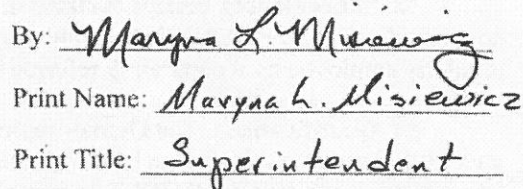 By: Maryna L. Misiewicz
Print Name: Maryna L. Misiewicz
Print Title: Superintendent